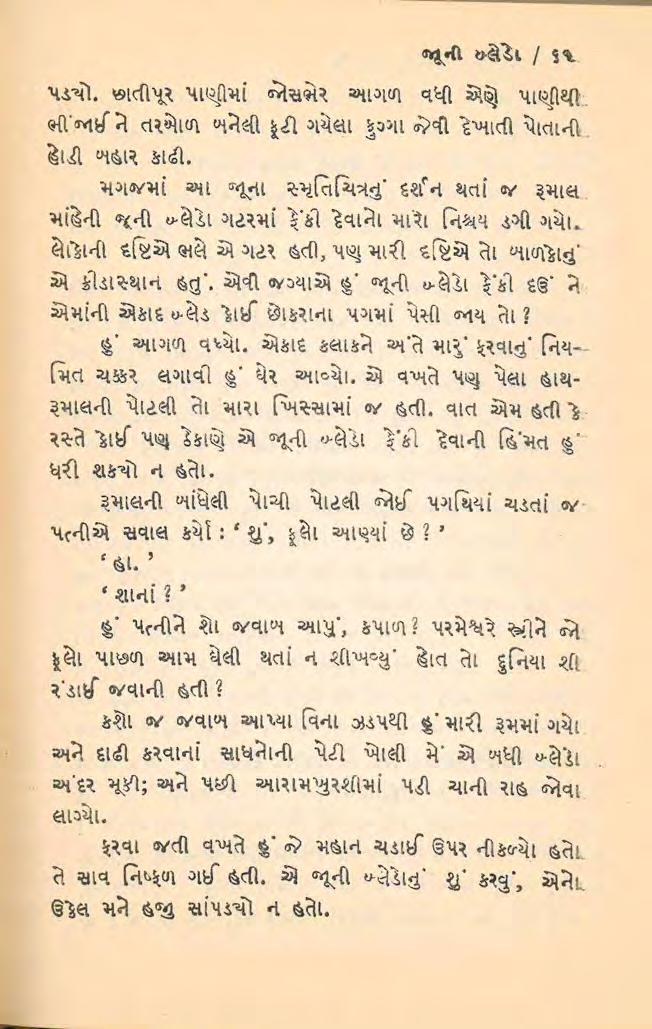 જૂની બ્લેડો / ૬૧
પડ્યો. છાતીપૂર પાણીમાં જોસભેર આગળ વધી એણે પાણીથી
ભીંજાઈ ને તરબોળ બનેલી ફૂટી ગયેલા ફુગ્ગા જેવી દેખાતી પોતાની
હોડી બહાર કાઢી.
મગજમાં આ જૂના સ્મૃતિચિત્રનું દર્શન થતાં જ રૂમાલ
માંહેની જૂની બ્લેડો ગટરમાં ફેંકી દેવાનો મારો નિશ્ચય ડગી ગયો.
લોકોની દૃષ્ટિએ ભલે એ ગટર હતી, પણ મારી દૃષ્ટિએ તો બાળકોનું
એ ક્રીડાસ્થાન હતું. એવી જગ્યાએ હું જૂની બ્લેડો ફેંકી દઉં ને
એમાંની એકાદ બ્લેડ કોઈ છોકરાના પગમાં પેસી જાય તો ?
હું આગળ વધ્યો. એકાદ કલાકને અંતે મારું ફરવાનું નિય-
મિત ચક્કર લગાવી હું ઘેર આવ્યો. એ વખતે પણ પેલા હાથ-
રૂમાલની પોટલી તો મારા ખિસ્સામાં જ હતી. વાત એમ હતી કે
રસ્તે કોઈ પણ ઠેકાણે એ જૂની બ્લેડો ફેંકી દેવાની હિંમત હું
ધરી શક્યો ન હતો.
રૂમાલની બાંધેલી પોચી પોટલી જોઈ પગથિયાં ચડતાં જ
પત્નીએ સવાલ કર્યો : ‘ શું, ફૂલો આણ્યાં છે ? ’
‘ હા. ’
‘ શાનાં ? ’
હું પત્નીને શો જવાબ આપું, કપાળ ? પરમેશ્વરે સ્ત્રીને જો
ફૂલો પાછળ આમ ઘેલી થતાં ન શીખવ્યું હોત તો દુનિયા શી
રંડાઈ જવાની હતી ?
કશો જ જવાબ આપ્યા વિના ઝડપથી હું મારી રૂમમાં ગયો
અને દાઢી કરવાનાં સાધનોની પેટી ખોલી મેં એ બધી બ્લેડો
અંદર મૂકી; અને પછી આરામખુરશીમાં પડી ચાની રાહ જોવા
લાગ્યો.
ફરવા જતી વખતે હું જે મહાન ચડાઈ ઉપર નીકળ્યો હતો
તે સાવ નિષ્ફળ ગઈ હતી. એ જૂની બ્લેડોનું શું કરવું, એનો
ઉકેલ મને હજી સાંપડ્યો ન હતો.